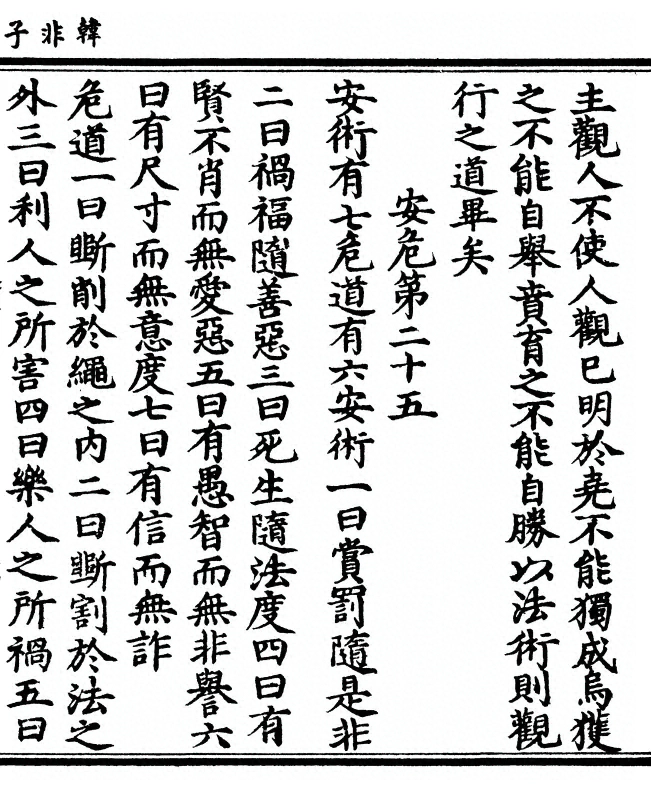 韓非子
主觀人不使人觀已明於堯不能獨成烏獲
之不能自舉賁育之不能自勝以法術則觀
行之道畢矣
安危第二十五
安術有七危道有六安術一曰賞罰隨是非
二曰禍福隨善惡三曰死生隨法度四曰有
賢不肖而無愛惡五曰有愚智而無非譽六
曰有尺寸而無意度七曰有信而無詐
危道一曰斲削於繩之內二曰斲割於法之
外三曰利人之所害四曰樂人之所禍五曰